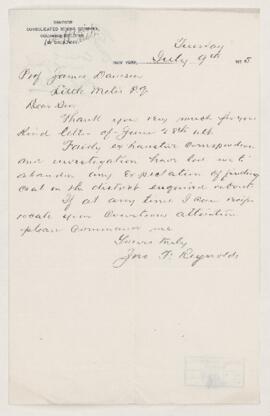 CONSOLIDATED MINING COMPANY,
COLUMBIA BUILDING
NEW YORK,
Tuesday
July 9th
Prof James Dawson
Little Metis P.Q
Dear Sir,
Thank you very much for your
kind letter of June 28th ult.
Fairly exhaustive correspondence
and investigation have led me to
abandon any expectation of finding
coal in the district enquired about.
If at any time I can recip-
rocate your courteous attention
please command me
Yours truly
Jas. F. Reynolds